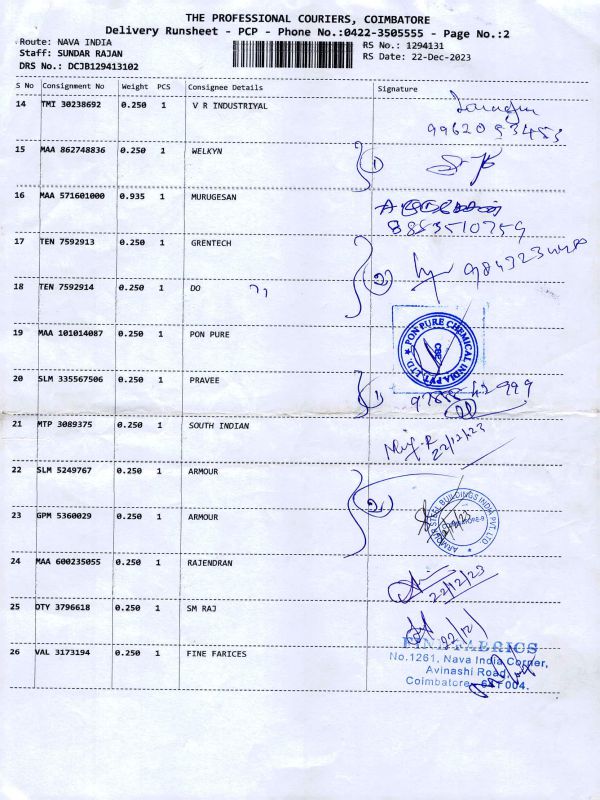 THE PROFESSIONAL COURIERS, COIMBATORE
Delivery Runsheet - PCP - Phone No.:0422-3505555 - Page No.:2
Route: NAVA INDIA RS No.: 1294131
Staff: SUNDAR RAJAN RS Date: 22-Dec-2023
DRS No.: DCJB129413102
S No Consignment No Weight PCS Consignee Details Signature
14 TMI 30238692 0.250 1 V R INDUSTRIYAL
15 MAA 862748836 0.250 1 WELKYN 1
16 MAA 571601000 0.935 1 MURUGESAN
8883510759
17 TEN 7592913 0.250 1 GRENTECH
2
18 TEN 7592914 0.250 1 DO ,,
19 MAA 101014087 0.250 1 PON PURE
PON PURE CHEMICAL INDIA PVT. LTD
CBE
20 SLM 335567506 0.250 1 PRAVEE 1
21 MTP 3089375 0.250 1 SOUTH INDIAN
22/12/23
22 SLM 5249767 0.250 1 ARMOUR
2
23 GPM 5360029 0.250 1 ARMOUR
ARMOUR STEEL BUILDINGS INDIA PVT. LTD
24 MAA 600235055 0.250 1 RAJENDRAN
22/12/23
25 OTY 3796618 0.250 1 SM RAJ
22/12/
26 VAL 3173194 0.250 1 FINE FARICES
FINE FABRICS
No.1261, Nava India Corner,
Avinashi Road,
Coimbatore - 641 004.